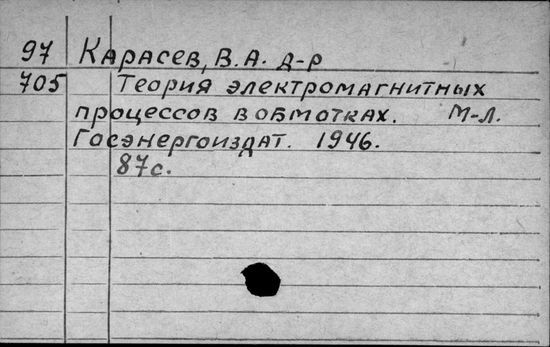 97 Карасев, В.А. д-р
705 Теория электромагнитных
процессов в обмотках. М-Л.
Госэнергоиздат. 1946.
87с.